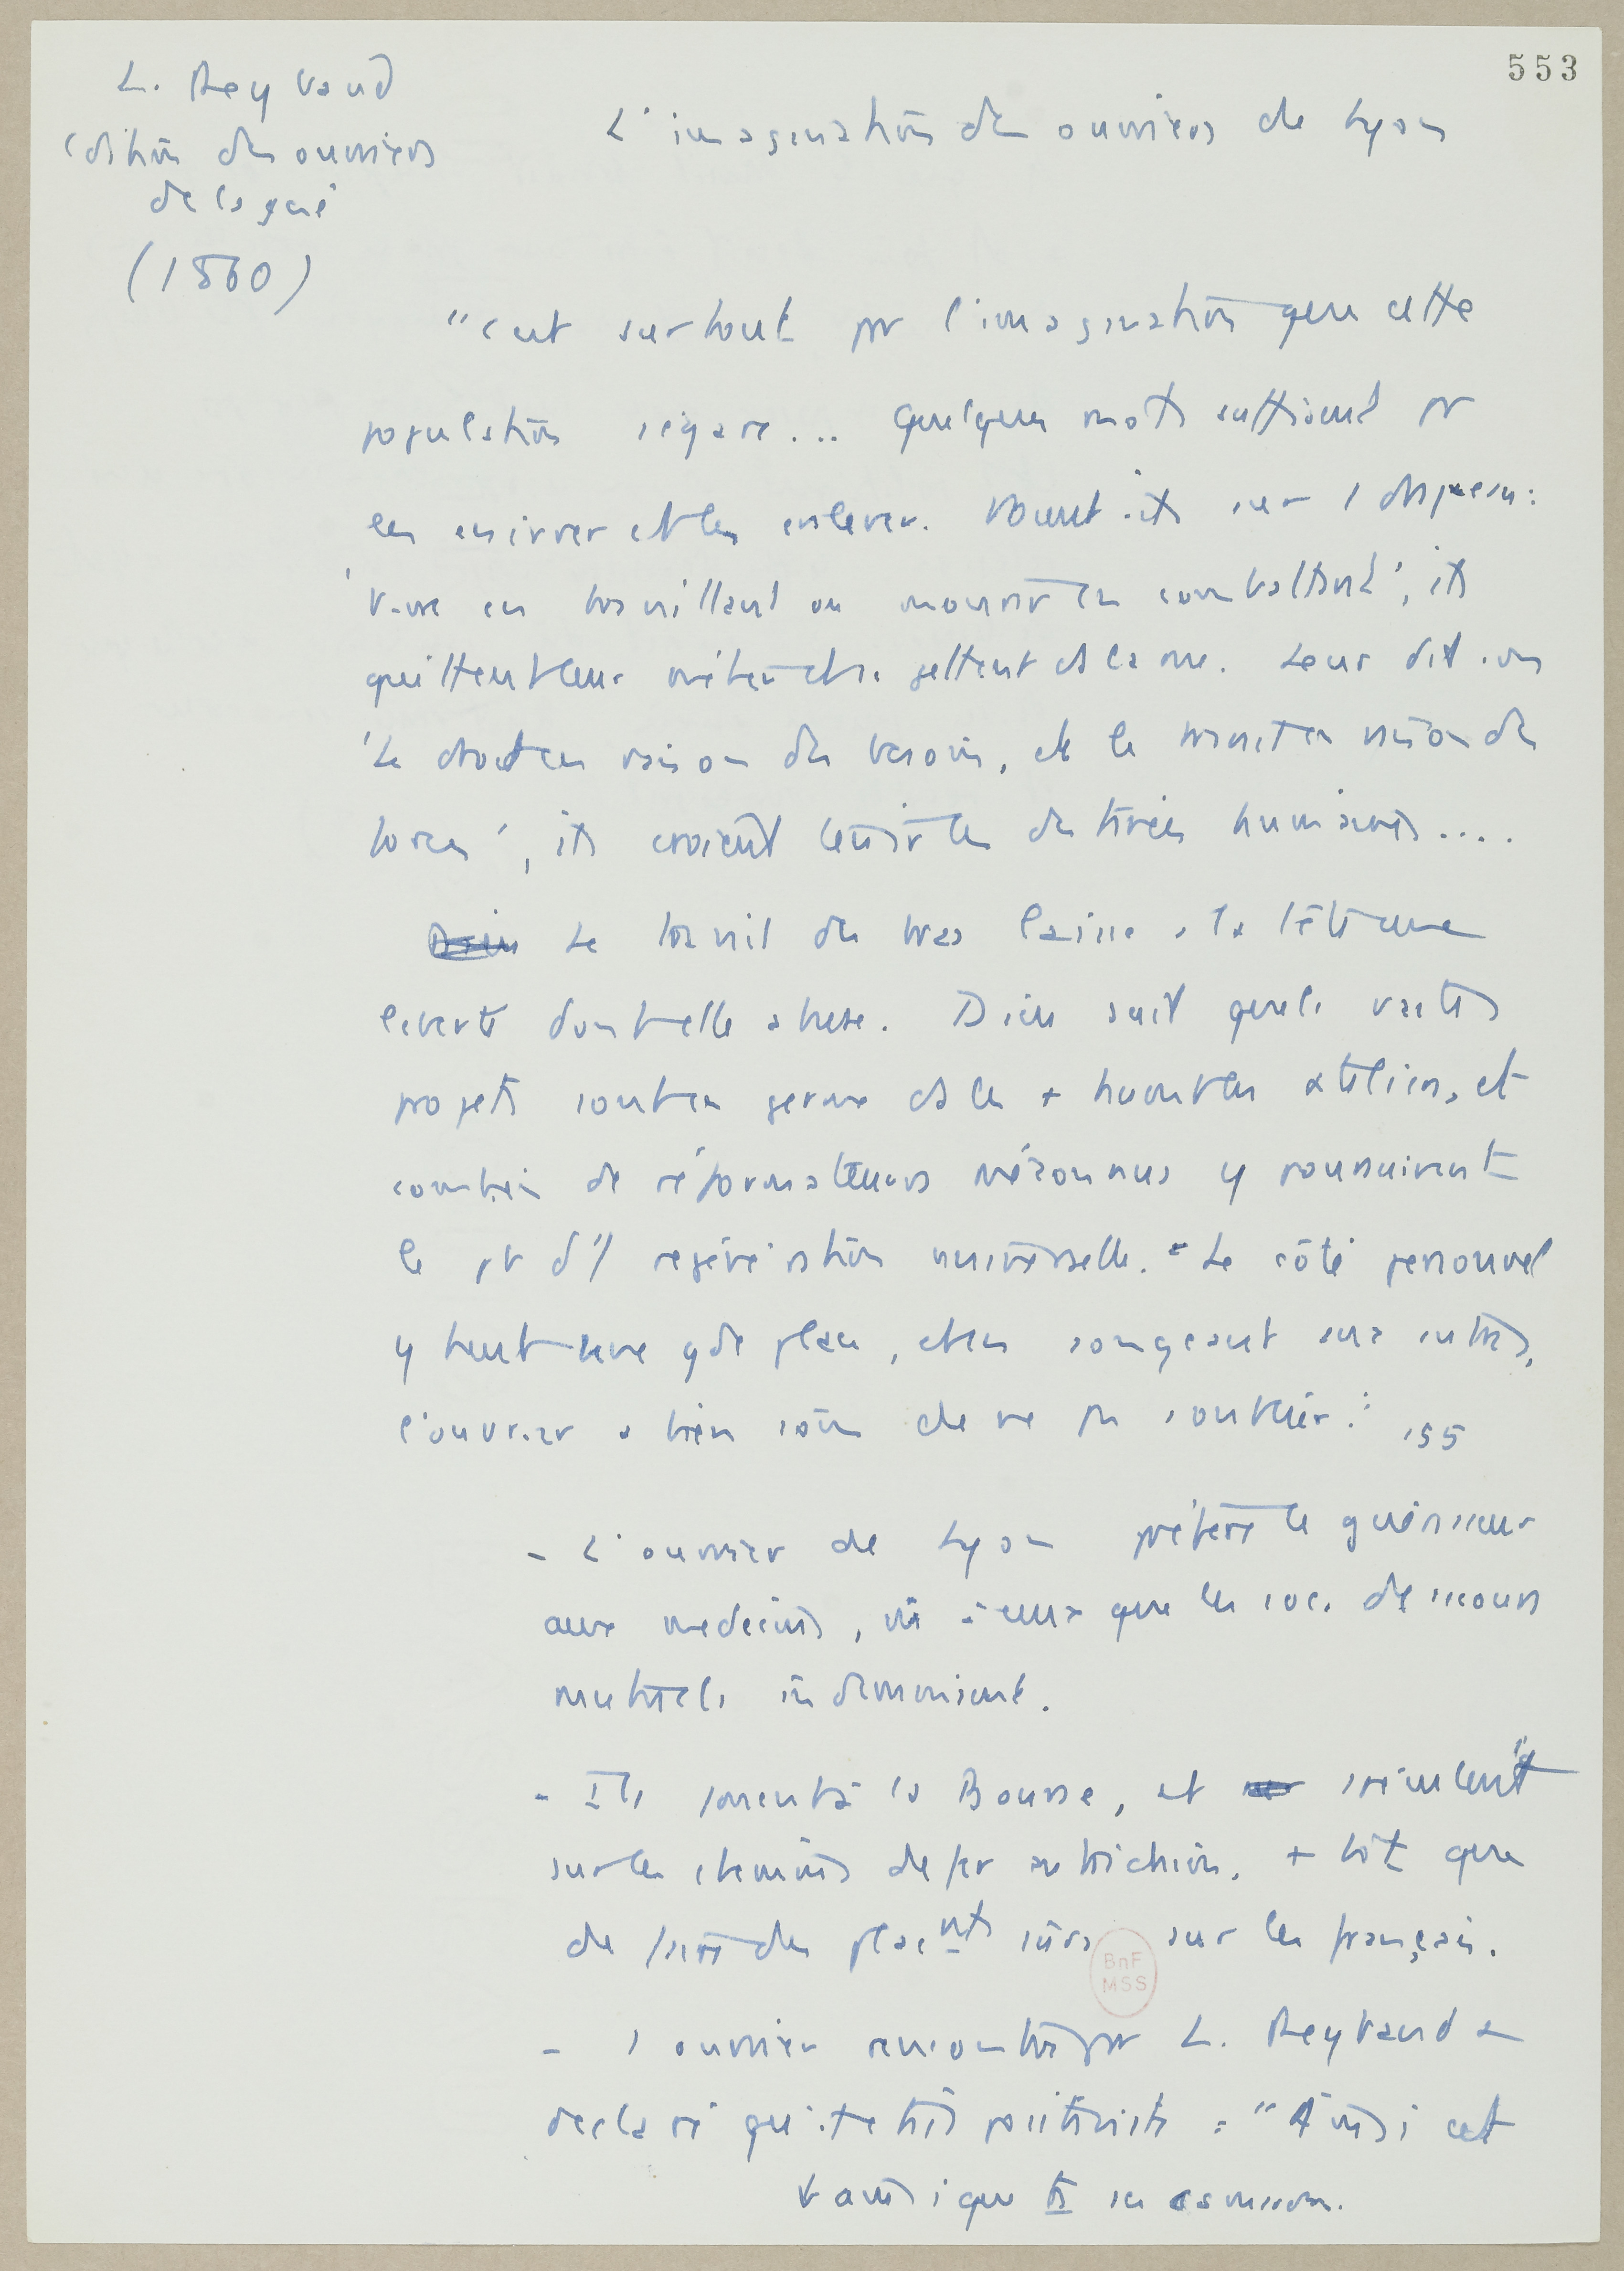 553
L. Reybaud
Cdition des ouvriers
de la soie
(1860)
L'imagination des ouvriers de Lyon
"C'est surtout par l'imagination que cette
population s'égare... Quelques mots suffisent pr
les enivrer et les enlever. Voient-ils sur 1 drapeau :
'Vivre en travaillant ou mourir en combattant', ils
quittent leur métier et se jettent ds la rue. Leur dit-on
'Le droit en raison du besoin, et le travail en raison des
forces', ils croient tenir les destinées humaines....
Le travail des bras laisse à la tête une
liberté dont elle abuse. Dieu sait quels vastes
projets sont en germe ds les + humbles ateliers, et
combien de réformateurs méconnus y poursuivent
le d'1 régénération universelle. Le côté personnel
y tient une gde place, et en songeant aux autres,
l'ouvrier a bien soin de ne pas s'oublier." 155
- L'ouvrier de Lyon préfère le guérisseur
aux médecins, même à ceux que les soc. de secours
mutuels indemnisent.
- Ils jouent à la Bourse, et spéculent
sur les chemins de fer autrichiens, + tôt que
de faire des placnts sûrs sur les français.
- 1 ouvrier rencontré par L. Reybaud a
déclaré qu'il était positiviste : "Ainsi est
BnF
MSS